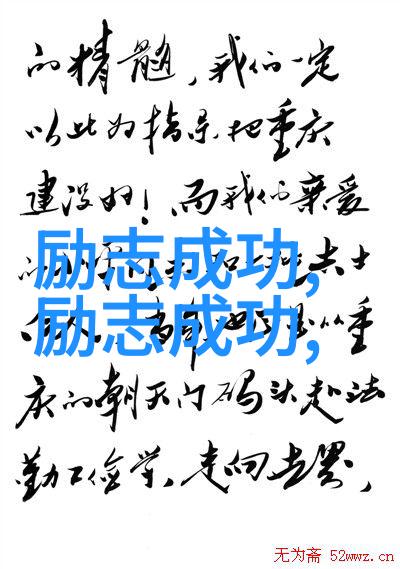 的精髓，我们一定
以此为指导把重庆
建设好！而我们亲爱
的
励志成功,
志士
励志成功,
也是从重
庆的朝天门码头赴法
勤工俭学，走向世界，
无为斋 52wwz.cn